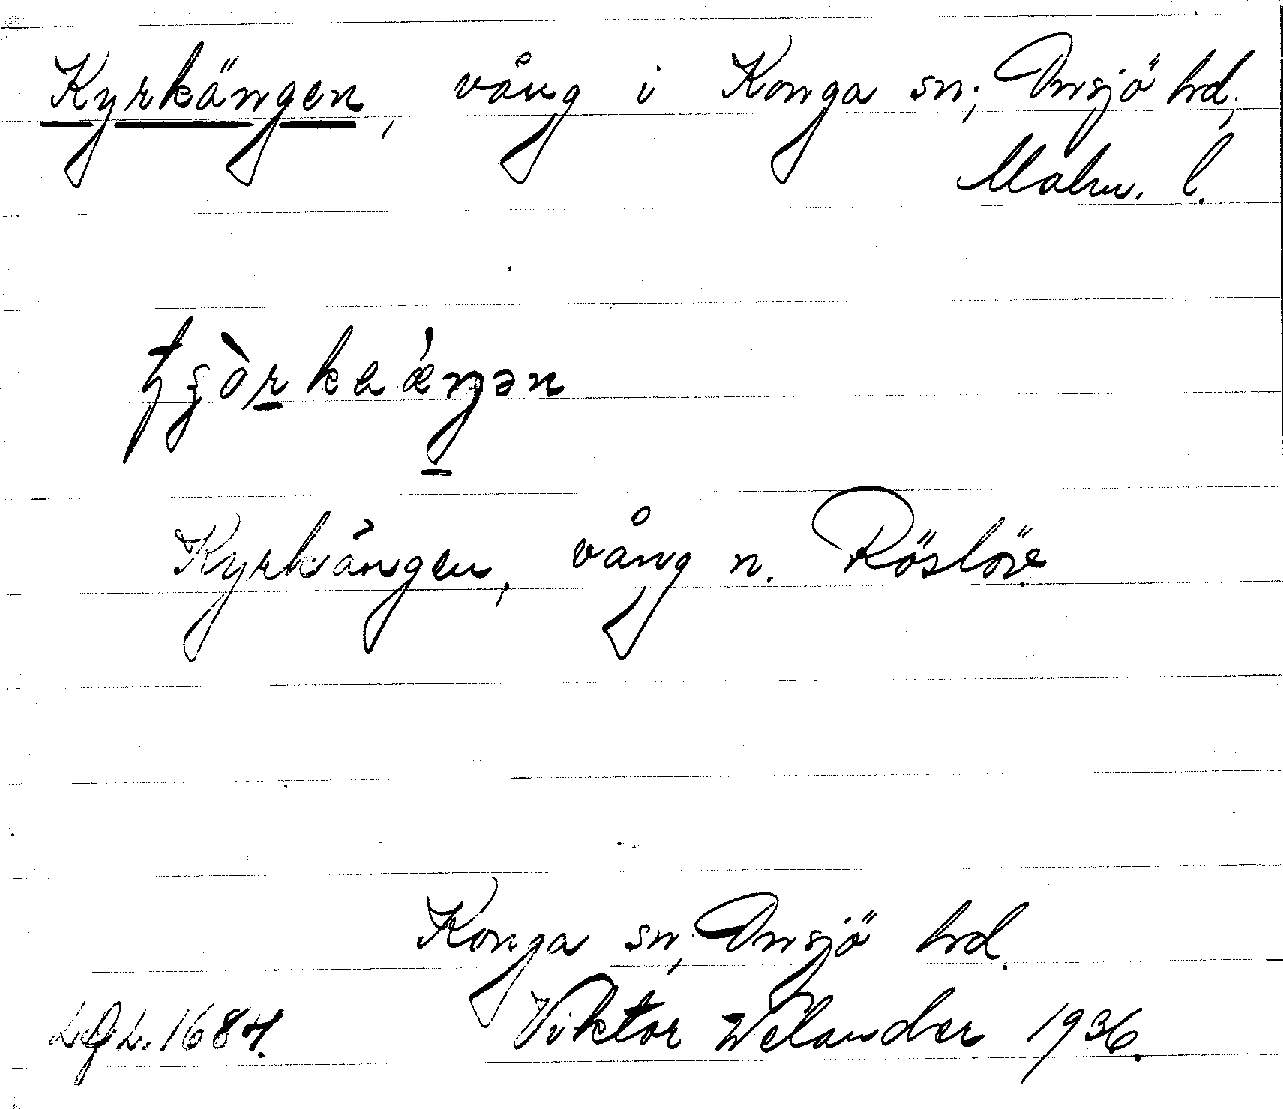 Kyrkängen, vång i Konga sn; Onsjö hd,
Malm. l.
Kyrkängen, vång n. Röslöv
Konga sn, Onsjö hd.
1684. Viktor Welander 1936.